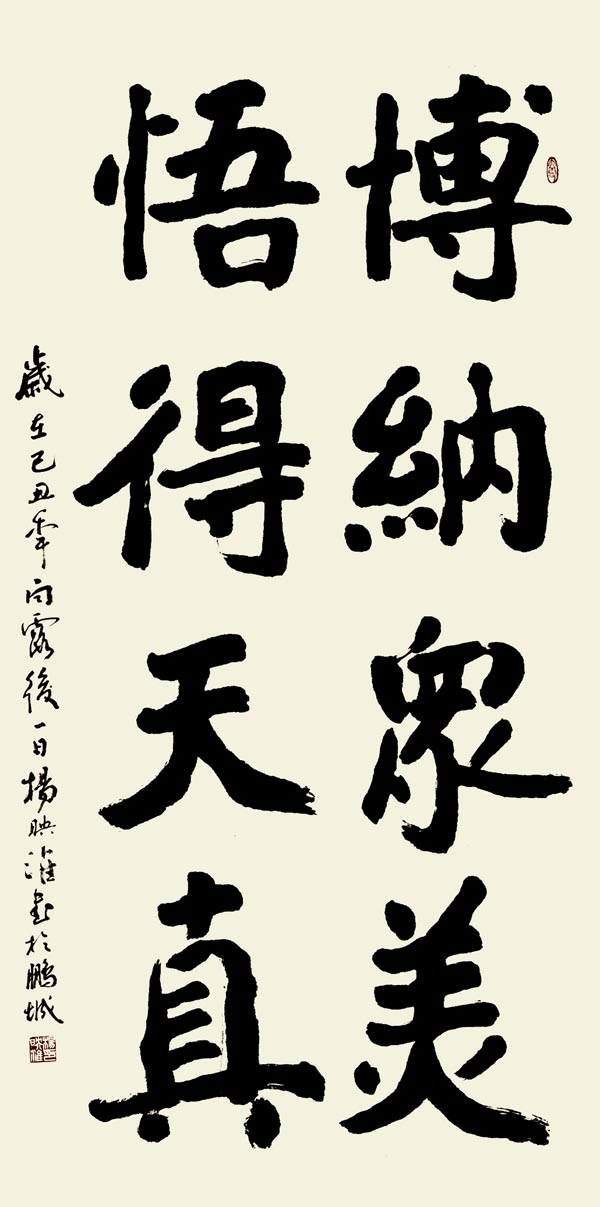 博納眾美
悟得天真
歲在己丑年白露後一日楊映淮書於鵬城